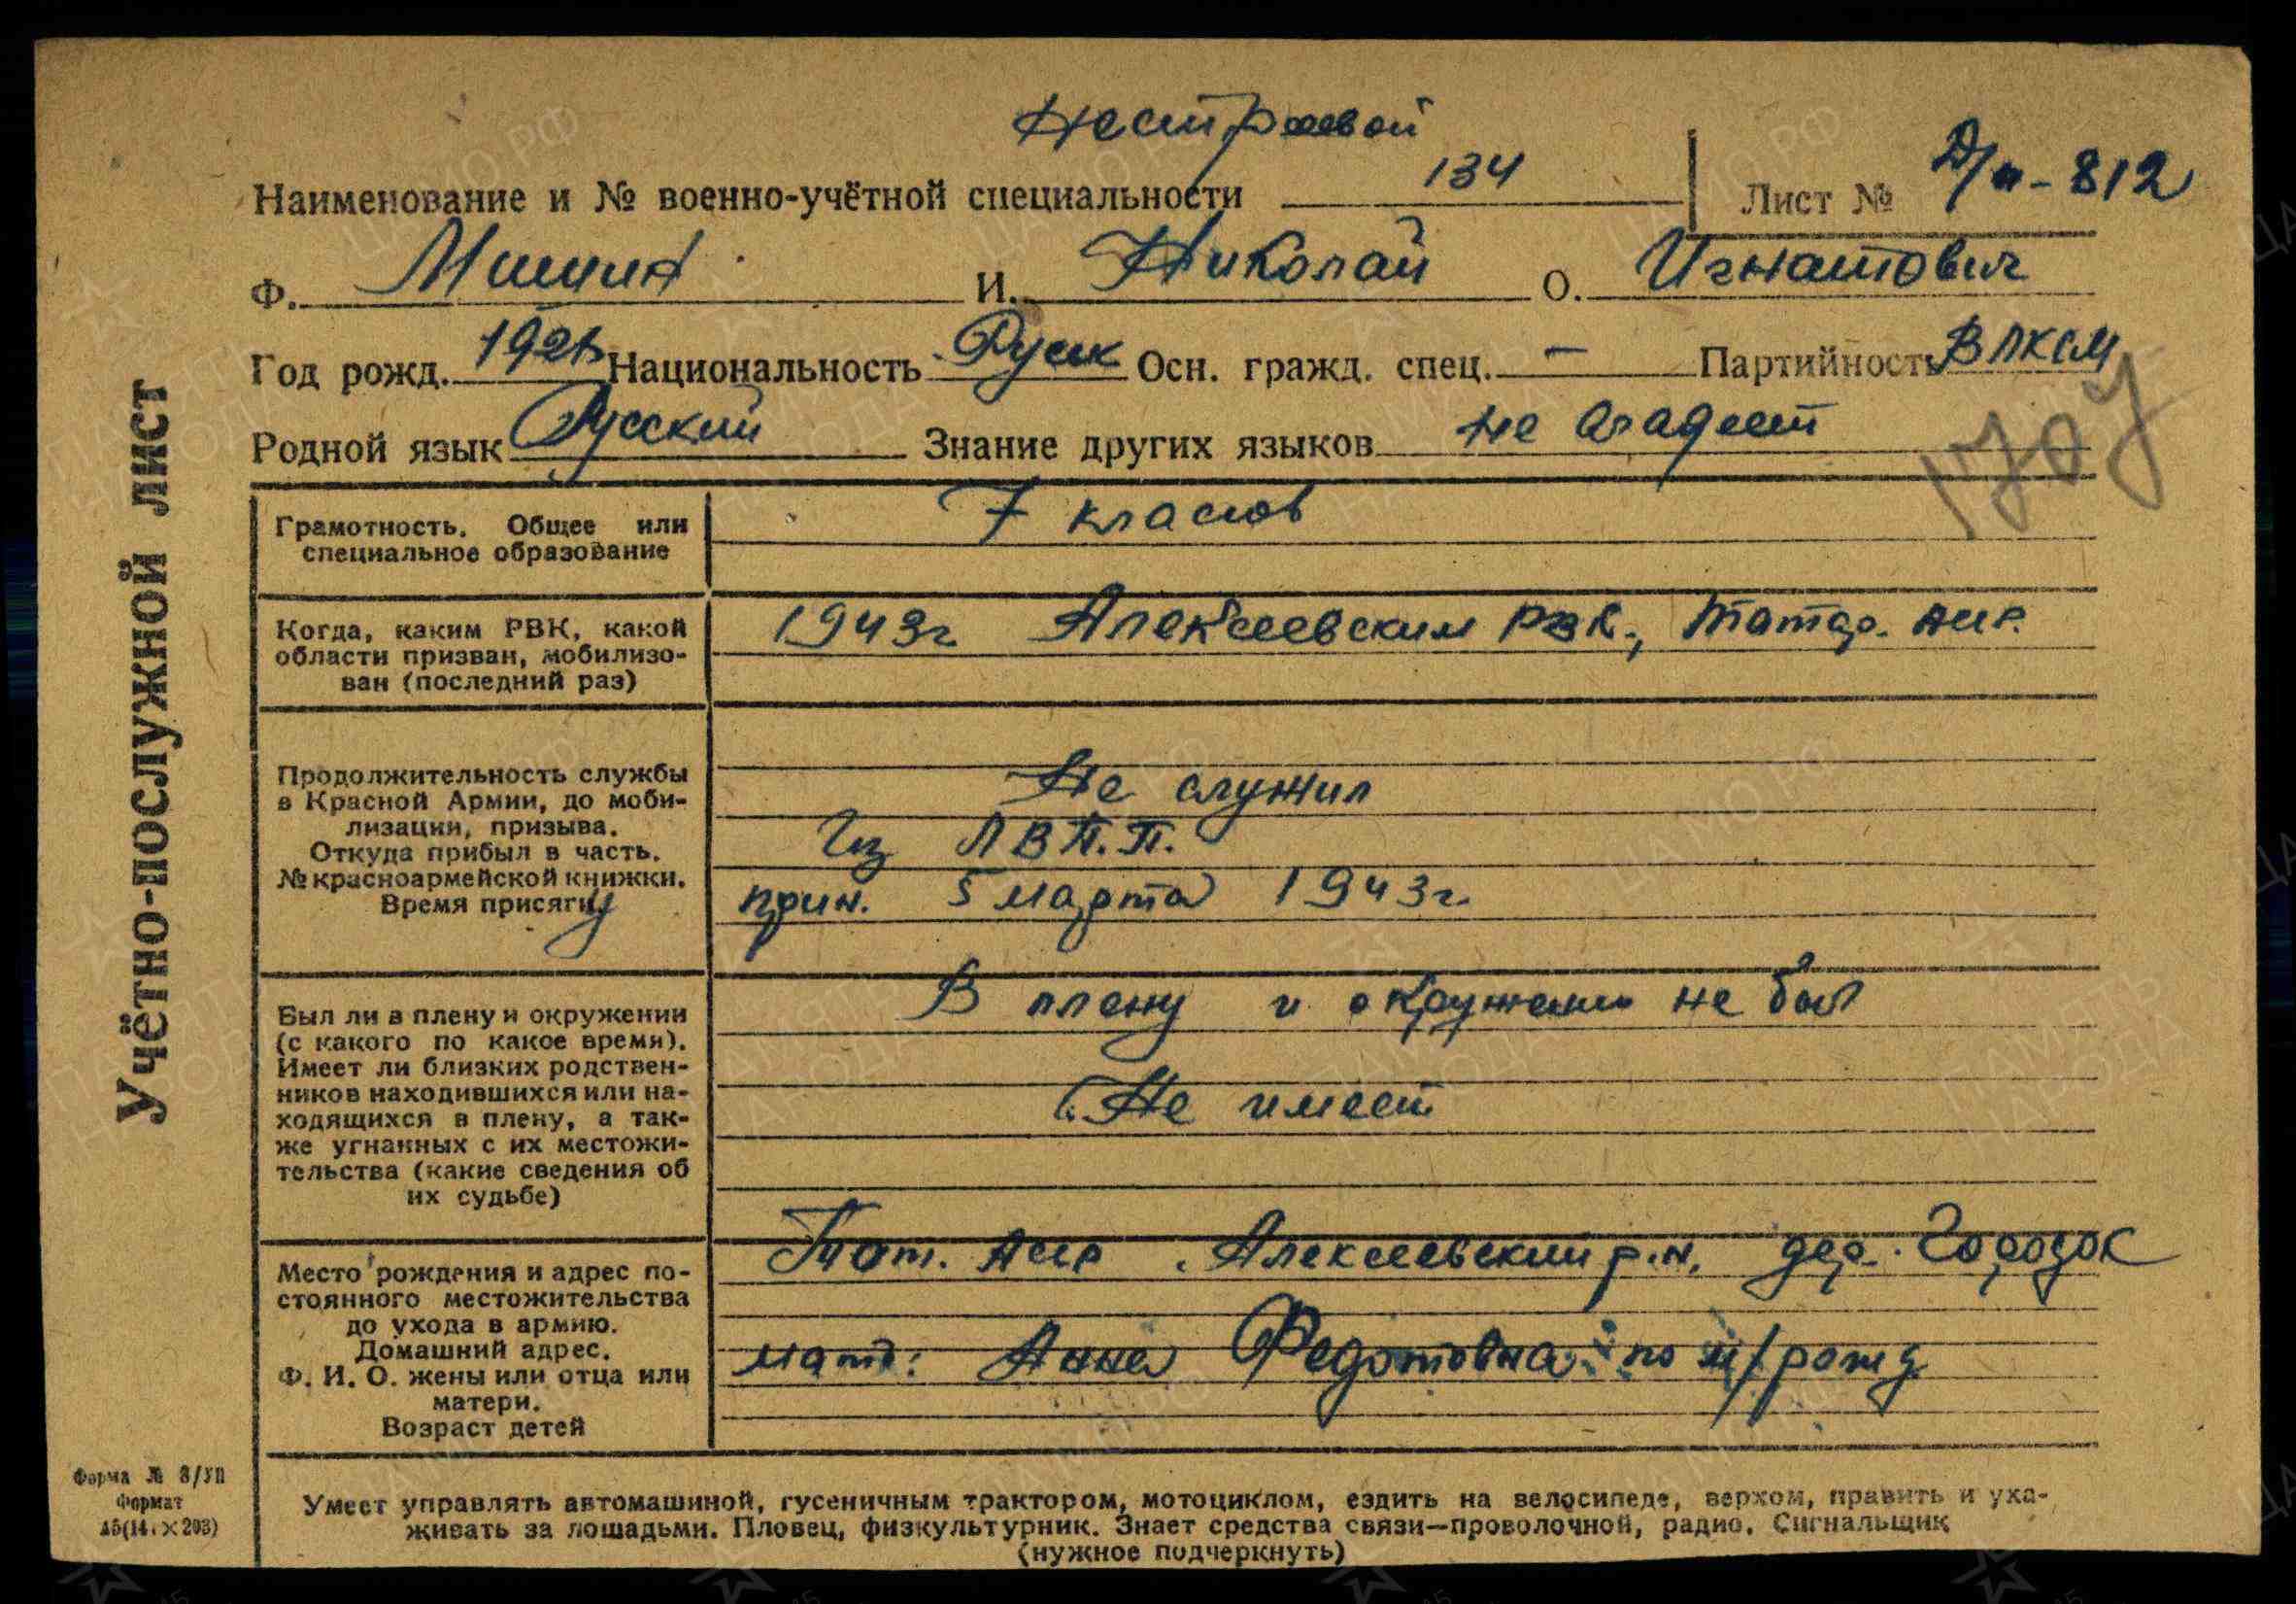 Нестроевой
Наименование и № военно-учётной специальности 134 Лист № Д/п-812
Ф. Мишин И. Николай О. Игнатович
Год рожд. Национальность Русск Осн. гражд. спец. — Партийность ВЛКСМ
Родной язык Русский Знание других языков не владеет
Учётно-послужной лист
Грамотность. Общее или
специальное образование
7 классов
Когда, каким РВК, какой
области призван, мобилизо-
ван (последний раз)
1943г Алексеевским РВК, Татар. АССР.
Продолжительность службы
в Красной Армии, до моби-
лизации, призыва.
Откуда прибыл в часть.
№ красноармейской книжки.
Время присяги
Не служил
Из ЛВП.П.
прин. 5 марта 1943г.
Был ли в плену и окружении
(с какого по какое время).
Имеет ли близких родствен-
ников находившихся или на-
ходящихся в плену, а так-
же угнанных с их местожи-
тельства (какие сведения об
их судьбе)
В плену и окружении не был
Не имеет
Место рождения и адрес по-
стоянного местожительства
до ухода в армию.
Домашний адрес.
Ф. И. О. жены или отца или
матери.
Возраст детей
Тат. АССР. Алексеевский р.н. дер. Городок
мать: Анна Федотовна: по м/рожд
Форма № 8/УП
Формат
Умеет управлять автомашиной, гусеничным трактором, мотоциклом, ездить на велосипеде, верхом, править и уха-
живать за лошадьми. Пловец, физкультурник. Знает средства связи—проволочной, радио. Сигнальщик
(нужное подчеркнуть)
ЦАМО.РФ